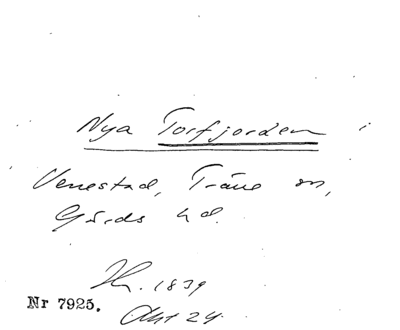 Nya Torfjorden i
Venestad, Träne sn,
Gärds hd.
Hr. 1839
Nr 7925.
Akt 24